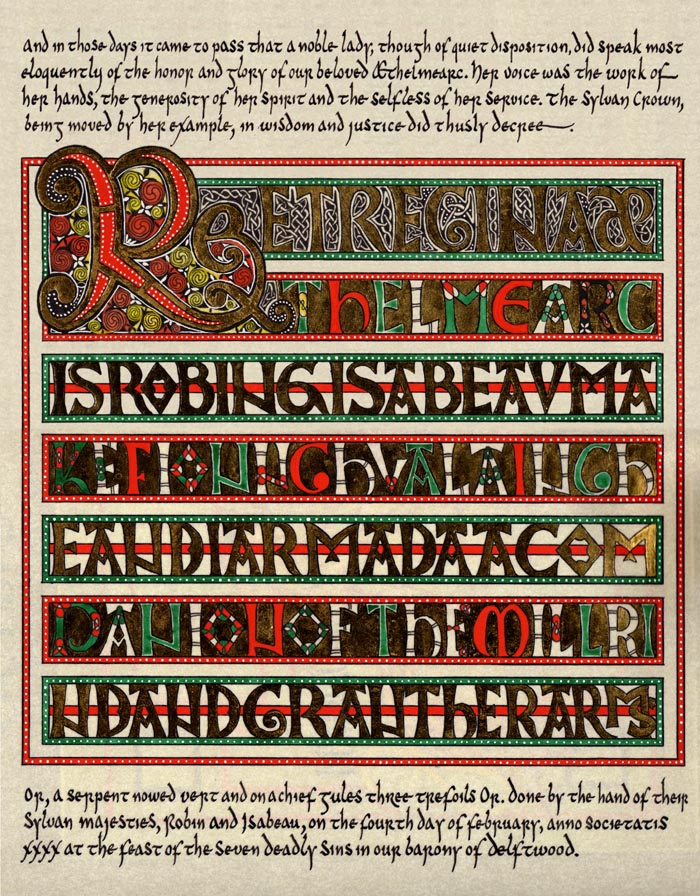 And in those days it came to pass that a noble lady, though of quiet disposition, did speak most
eloquently of the honor and glory of our beloved Æthelmearc. Her voice was the work of
her hands, the generosity of her spirit and the selfless of her service. The Sylvan Crown,
being moved by her example, in wisdom and justice did thusly decree
REXETREGINAÆ
THELMEARC
ISROBIN&ISABEAVMA
KEFIONNGHVALAINGH
EANDIARMADAACOM
PANIONOFTHEMILLRI
NDANDGRANTHERARMS
Or, a serpent nowed vert and on a chief gules three trefoils Or. done by the hand of their
Sylvan majesties, Robin and Isabeau, on the fourth day of february, anno societatis
xxxx at the feast of the Seven deadly Sins in our barony of delftwood.